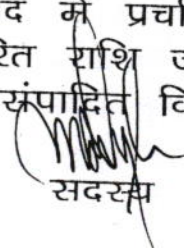 द मे प्रचा
रेत राशि ज
संपादित वि
सदस्य